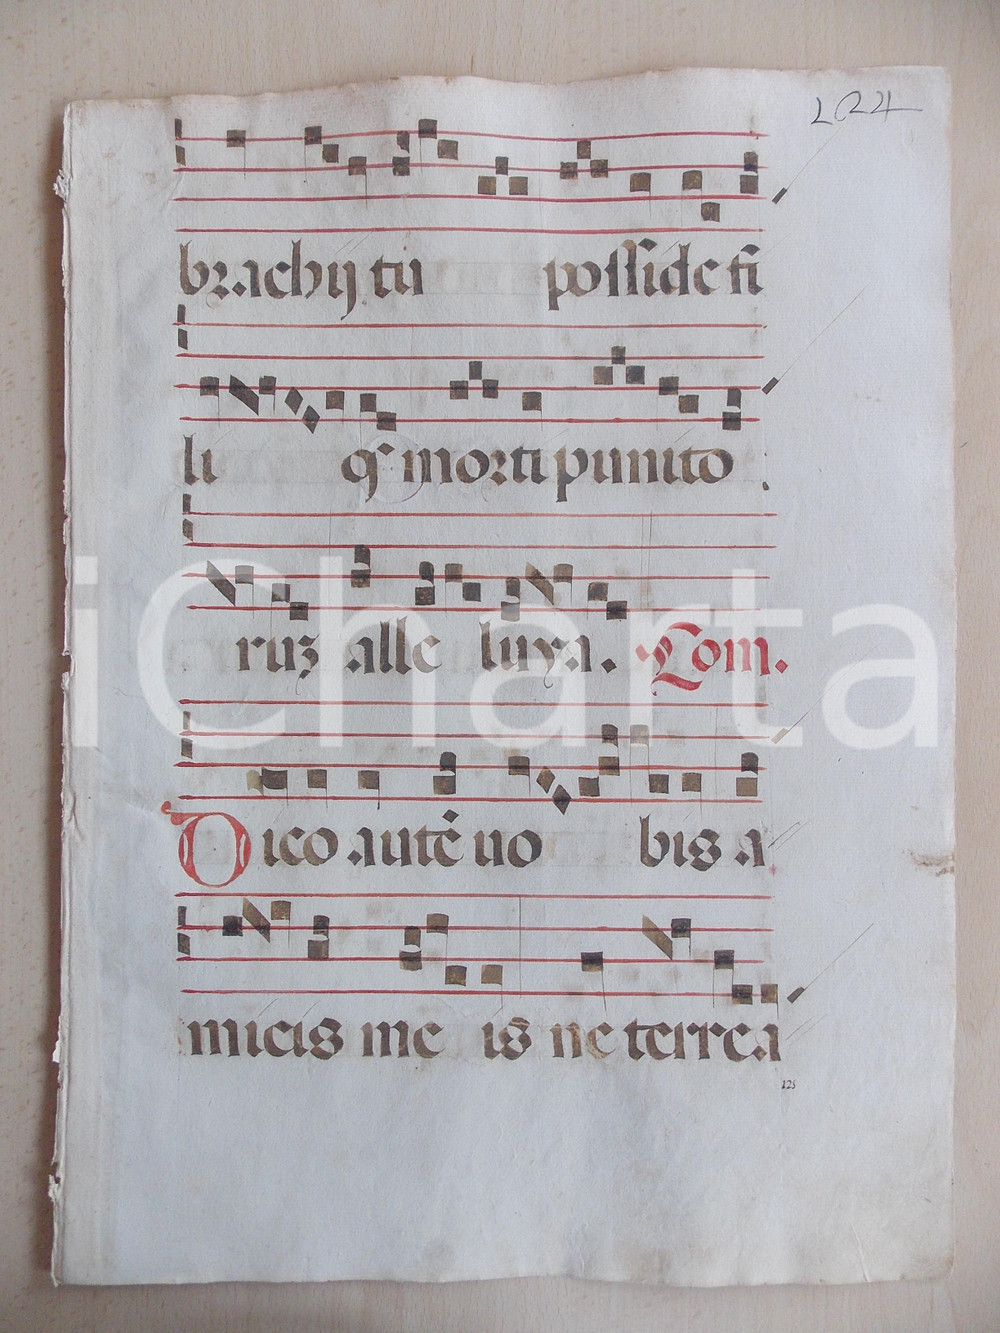 brachij tu possidē fi
li qͥ morti punito
ruȝ alle luya. Com.
Dico autē vo bis a
micis me is ne terrea
125
iCharta